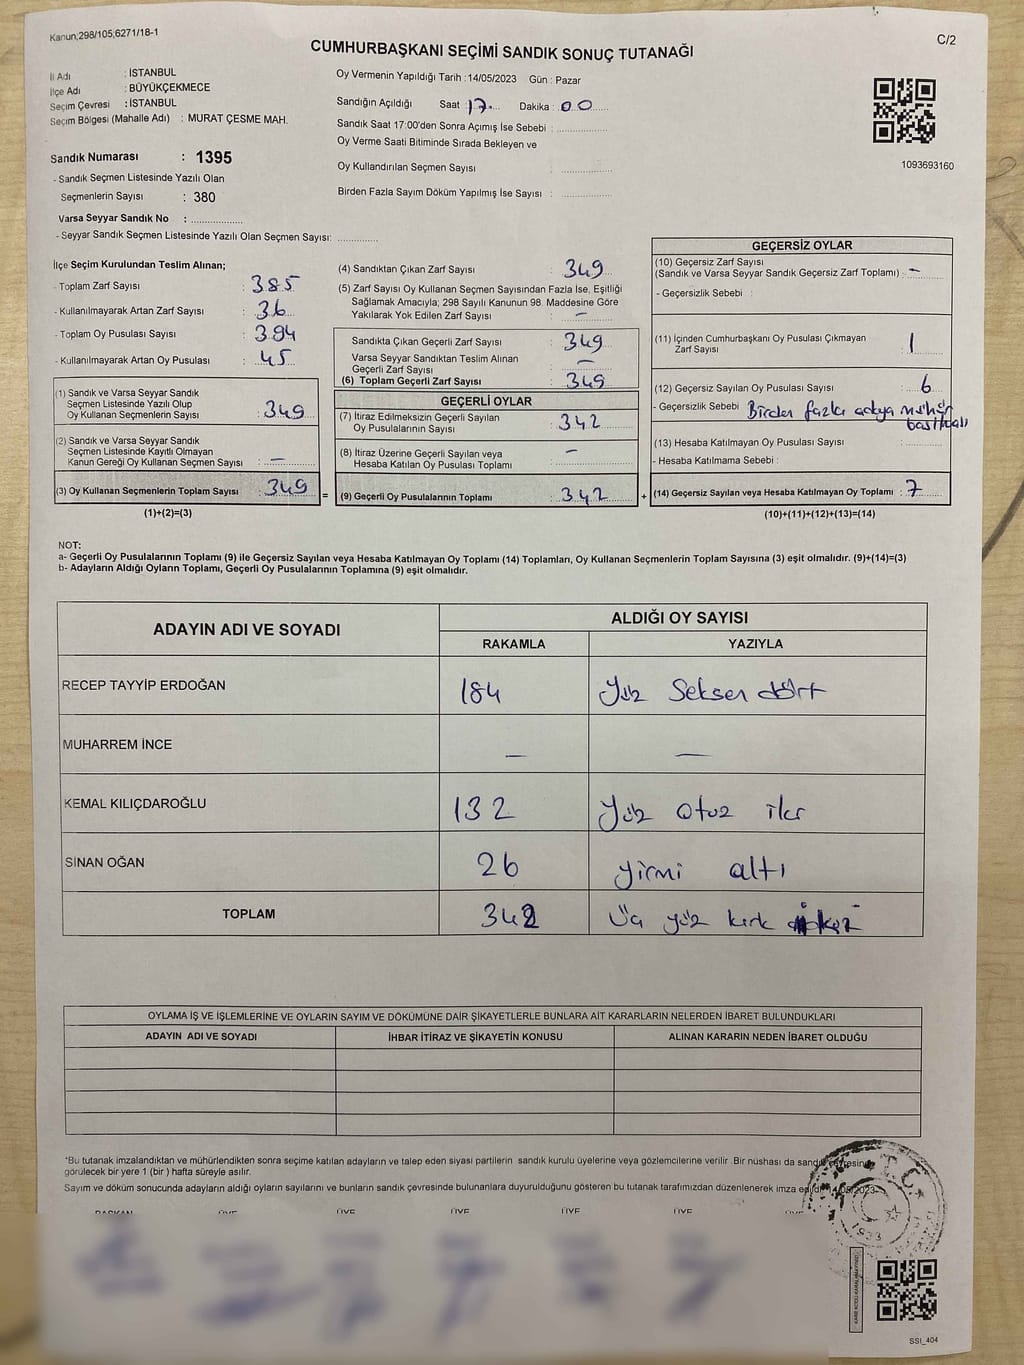 Kanun;298/105;6271/18-1
C/2
CUMHURBAŞKANI SEÇİMİ SANDIK SONUÇ TUTANAĞI
İl Adı : İSTANBUL
İlçe Adı : BÜYÜKÇEKMECE
Seçim Çevresi : İSTANBUL
Seçim Bölgesi (Mahalle Adı) : MURAT ÇESME MAH.
Sandık Numarası : 1395
- Sandık Seçmen Listesinde Yazılı Olan
Seçmenlerin Sayısı : 380
Varsa Seyyar Sandık No : ....................
- Seyyar Sandık Seçmen Listesinde Yazılı Olan Seçmen Sayısı: ..............
Oy Vermenin Yapıldığı Tarih : 14/05/2023 Gün : Pazar
Sandığın Açıldığı Saat : 17 Dakika : 00
Sandık Saat 17:00'den Sonra Açımış İse Sebebi : ....................
Oy Verme Saati Bitiminde Sırada Bekleyen ve
Oy Kullandırılan Seçmen Sayısı : ....................
Birden Fazla Sayım Döküm Yapılmış İse Sayısı : ....................
1093693160
İlçe Seçim Kurulundan Teslim Alınan;
- Toplam Zarf Sayısı : 385
- Kullanılmayarak Artan Zarf Sayısı : 36
- Toplam Oy Pusulası Sayısı : 394
- Kullanılmayarak Artan Oy Pusulası : 45
(1) Sandık ve Varsa Seyyar Sandık
Seçmen Listesinde Yazılı Olup
Oy Kullanan Seçmenlerin Sayısı : 349
(2) Sandık ve Varsa Seyyar Sandık
Seçmen Listesinde Kayıtlı Olmayan
Kanun Gereği Oy Kullanan Seçmen Sayısı : –
(3) Oy Kullanan Seçmenlerin Toplam Sayısı : 349 =
(1)+(2)=(3)
(4) Sandıktan Çıkan Zarf Sayısı : 349
(5) Zarf Sayısı Oy Kullanan Seçmen Sayısından Fazla İse, Eşitliği
Sağlamak Amacıyla; 298 Sayılı Kanunun 98. Maddesine Göre
Yakılarak Yok Edilen Zarf Sayısı : –
Sandıkta Çıkan Geçerli Zarf Sayısı : 349
Varsa Seyyar Sandıktan Teslim Alınan
Geçerli Zarf Sayısı : –
(6) Toplam Geçerli Zarf Sayısı : 349
GEÇERLİ OYLAR
(7) İtiraz Edilmeksizin Geçerli Sayılan
Oy Pusulalarının Sayısı : 342
(8) İtiraz Üzerine Geçerli Sayılan veya
Hesaba Katılan Oy Pusulası Toplamı : –
(9) Geçerli Oy Pusulalarının Toplamı : 342 +
GEÇERSİZ OYLAR
(10) Geçersiz Zarf Sayısı
(Sandık ve Varsa Seyyar Sandık Geçersiz Zarf Toplamı) : –
- Geçersizlik Sebebi :
(11) İçinden Cumhurbaşkanı Oy Pusulası Çıkmayan
Zarf Sayısı : 1
(12) Geçersiz Sayılan Oy Pusulası Sayısı : 6
- Geçersizlik Sebebi : Birden fazla adaya mühür
basılması
(13) Hesaba Katılmayan Oy Pusulası Sayısı : ..............
- Hesaba Katılmama Sebebi :
(14) Geçersiz Sayılan veya Hesaba Katılmayan Oy Toplamı : 7
(10)+(11)+(12)+(13)=(14)
NOT:
a- Geçerli Oy Pusulalarının Toplamı (9) ile Geçersiz Sayılan veya Hesaba Katılmayan Oy Toplamı (14) Toplamları, Oy Kullanan Seçmenlerin Toplam Sayısına (3) eşit olmalıdır. (9)+(14)=(3)
b- Adayların Aldığı Oyların Toplamı, Geçerli Oy Pusulalarının Toplamına (9) eşit olmalıdır.
ADAYIN ADI VE SOYADI
ALDIĞI OY SAYISI
RAKAMLA YAZIYLA
RECEP TAYYİP ERDOĞAN 184 Yüz Seksen dört
MUHARREM İNCE – –
KEMAL KILIÇDAROĞLU 132 Yüz otuz iki
SİNAN OĞAN 26 yirmi altı
TOPLAM 342 Üç yüz kırk iki
OYLAMA İŞ VE İŞLEMLERİNE VE OYLARIN SAYIM VE DÖKÜMÜNE DAİR ŞİKAYETLERLE BUNLARA AİT KARARLARIN NELERDEN İBARET BULUNDUKLARI
ADAYIN ADI VE SOYADI İHBAR İTİRAZ VE ŞİKAYETİN KONUSU ALINAN KARARIN NEDEN İBARET OLDUĞU
*Bu tutanak imzalandıktan ve mühürlendikten sonra seçime katılan adayların ve talep eden siyasi partilerin sandık kurulu üyelerine veya gözlemcilerine verilir .Bir nüshası da sandık çevresinde
görülecek bir yere 1 (bir ) hafta süreyle asılır.
Sayım ve döküm sonucunda adayların aldığı oyların sayılarını ve bunların sandık çevresinde bulunanlara duyurulduğunu gösteren bu tutanak tarafımızdan düzenlenerek imza edildi 14/05/2023
BAŞKAN ÜYE ÜYE ÜYE ÜYE ÜYE ÜYE
T.C.
1923
SSI_404